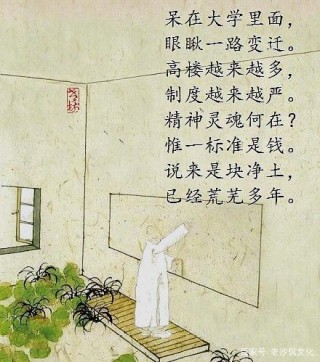 呆在大学里面，
眼瞅一路变迁。
高楼越来越多，
制度越来越严。
精神灵魂何在？
惟一标准是钱。
说来是块净土，
已经荒芜多年。
百家号/老沙侃文化